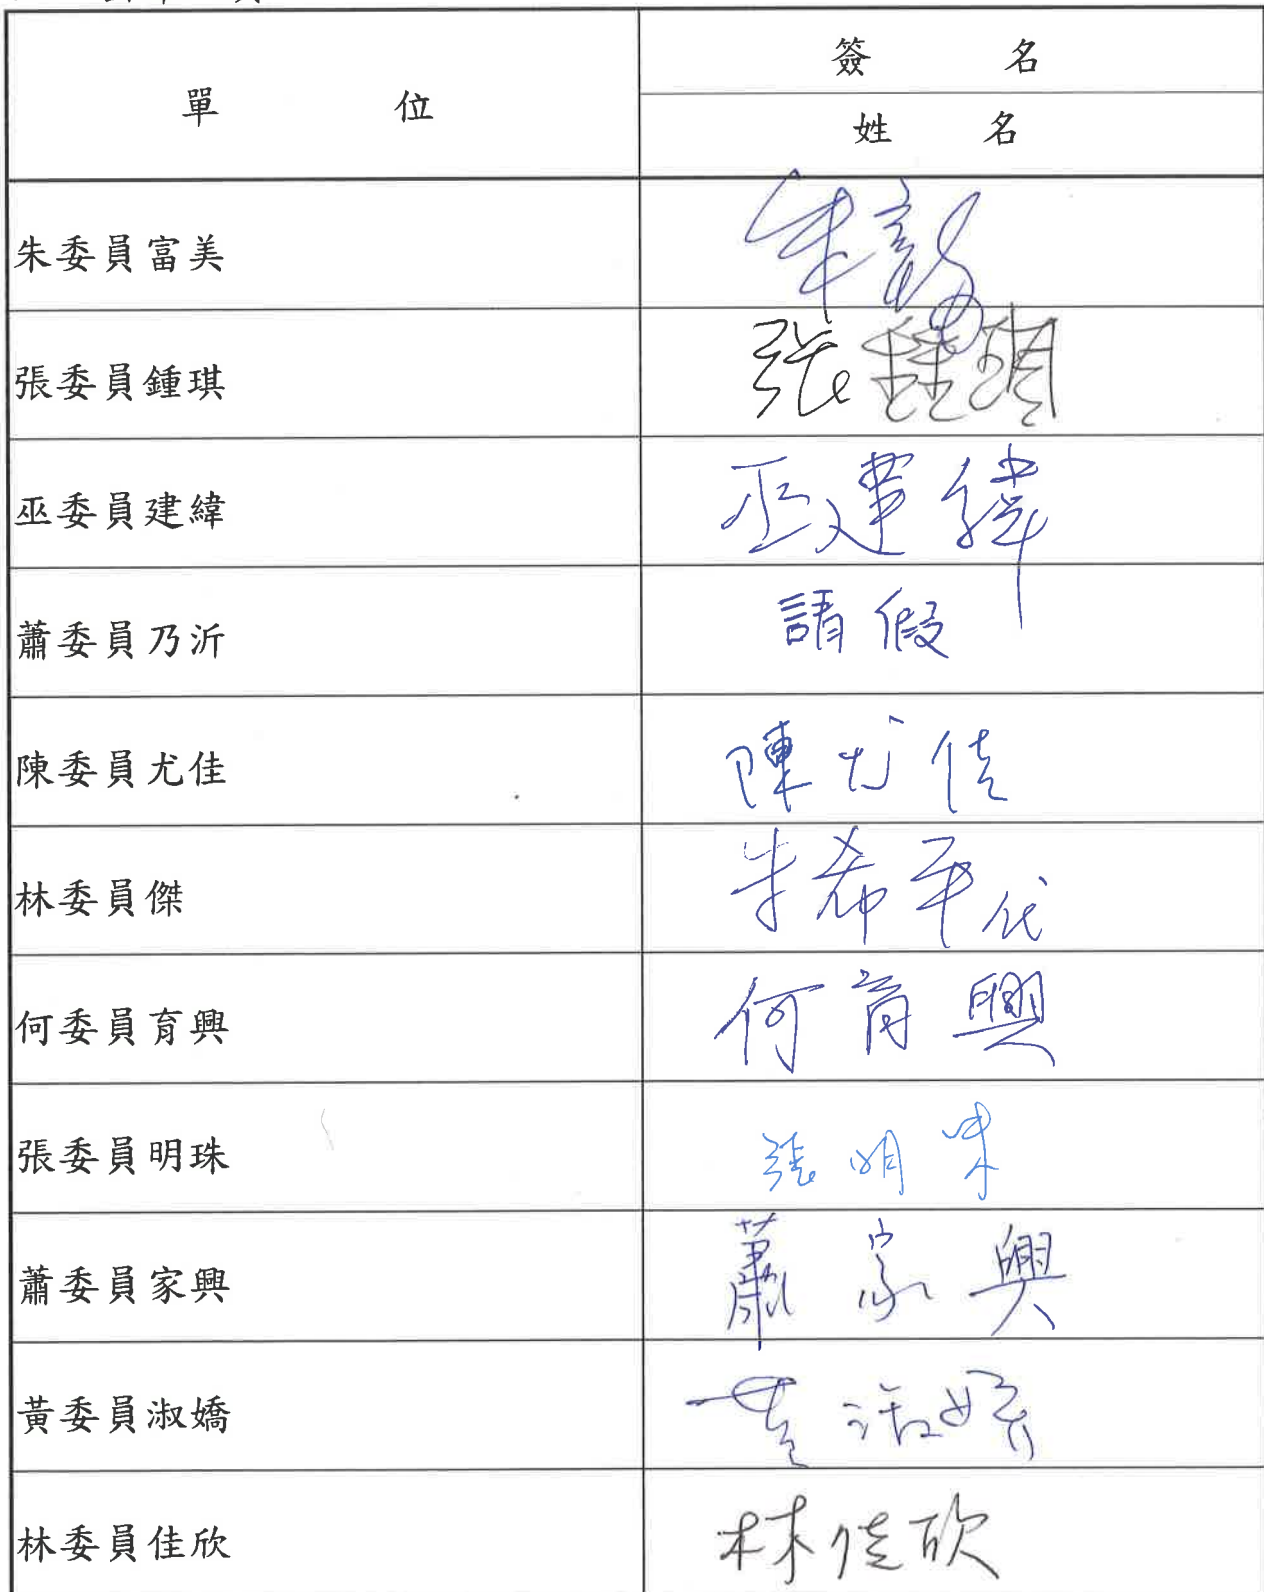 單位
簽名
姓名
朱委員富美
朱富
張委員鍾琪
張鍾琪
巫委員建緯
巫建緯
蕭委員乃沂
請假
陳委員尤佳
陳尤佳
林委員傑
牛希平代
何委員育興
何育興
張委員明珠
張明珠
蕭委員家興
蕭家興
黃委員淑嬌
黃淑嬌
林委員佳欣
林佳欣